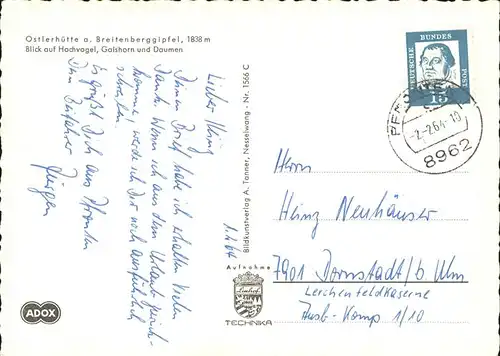 Ostlerhütte a. Breitenberggipfel, 1838 m
Blick auf Hochvogel, Gaishorn und Daumen
1.2.64
Lieber Heinz
Deinen Brief habe ich erhalten Vielen
Dank. Wenn ich aus dem Urlaub zurück-
komme, werde ich Dir noch ausführlich
schreiben.
Es grüßt Dich aus Pfronten
Dein
Jürgen
Bildkunstverlag A. Tanner, Nesselwang - Nr. 1566 C
Aufnahme
Linhof
TECHNIKA
ADOX
DEUTSCHE
BUNDES
POST
15
PFRONTEN
-2.-2.64-10
8962
Herrn
Heinz Neuhäuser
7901 Dornstadt/b Ulm
Lerchenfeldkaserne
Ausb-Komp 1/10